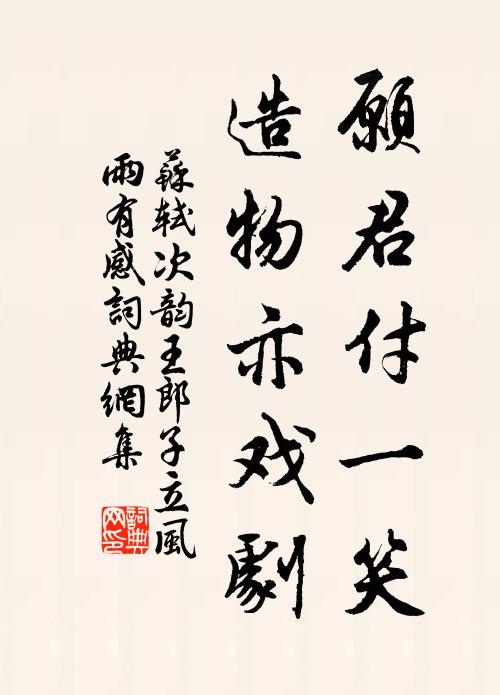 願君付一笑
造物亦戏劇
蘇軾次韵王郎子立風
雨有感詞典網集
詞典
网印